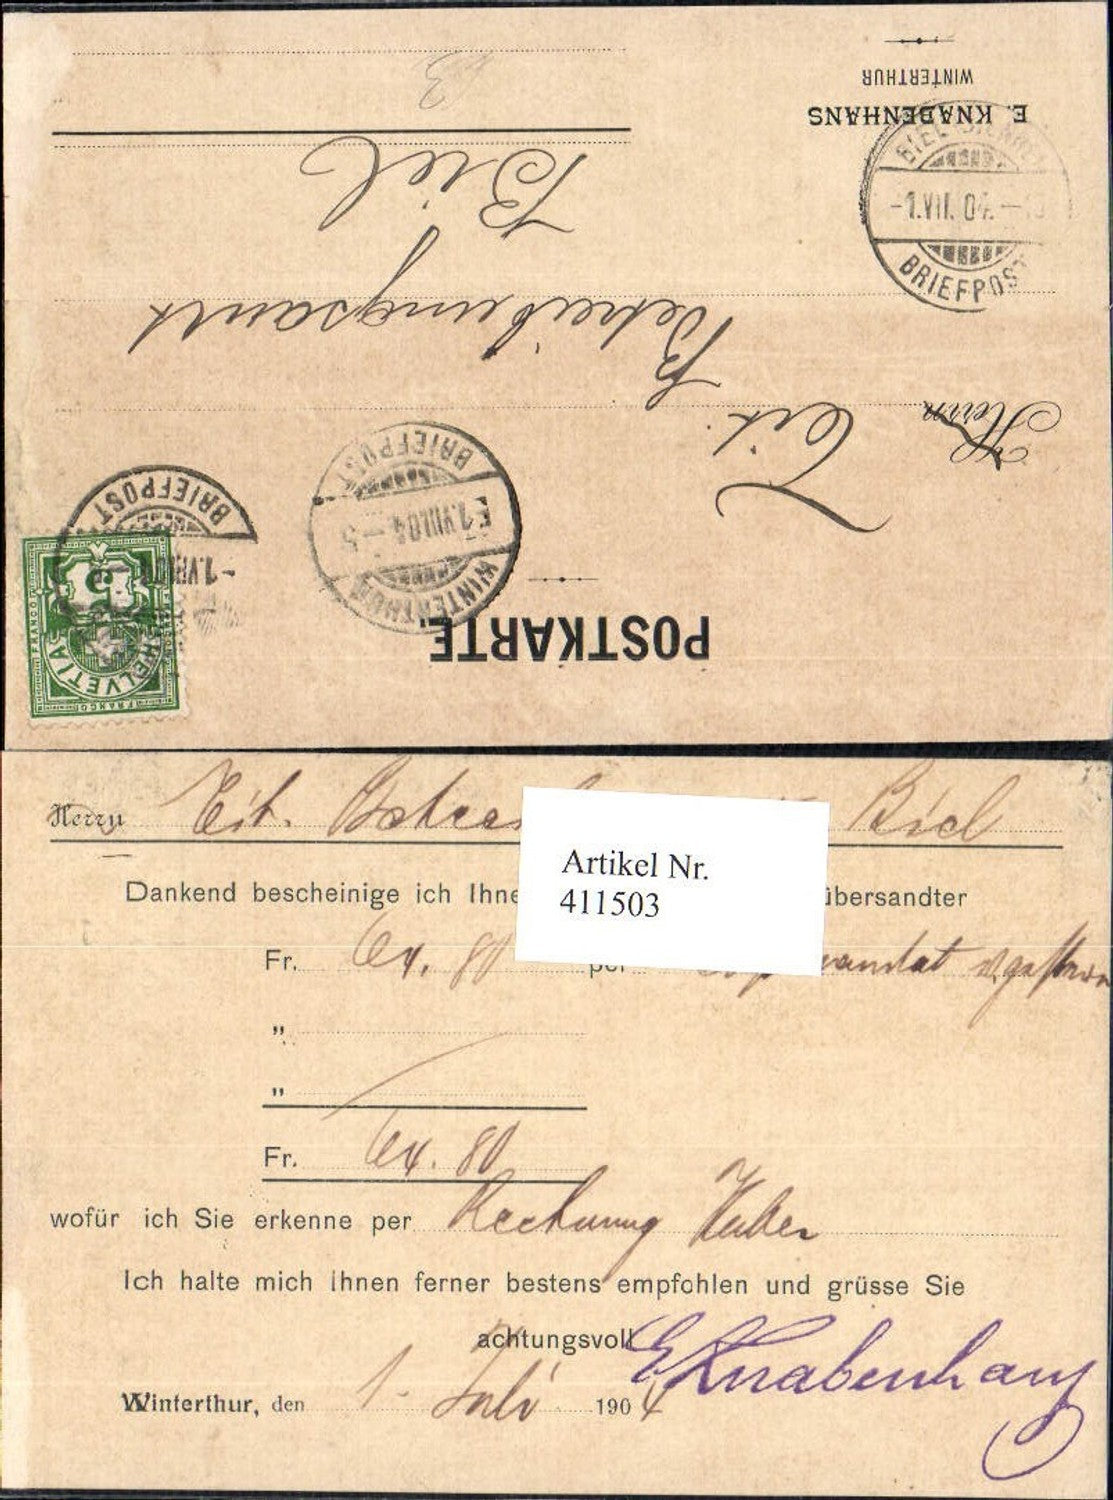 E. KNABENHANS
WINTERTHUR
POSTKARTE.
Herrn Tit.
Betreibungsamt
Biel
BRIEFPOST
-1.VII.04
HELVETIA
FRANCO
FRANCO
5
WINTERTHUR
1.VII.04-5
BRIEFPOST
BIEL
-1.VII.04.-
BRIEFPOST
Herrn Tit. Biel
Artikel Nr.
411503
Dankend bescheinige ich Ihne übersandter
Fr. 80 per mandat
"
"
Fr. 80
wofür ich Sie erkenne per Rechnung Huber
Ich halte mich Ihnen ferner bestens empfohlen und grüsse Sie
achtungsvoll E. Knabenhans
Winterthur, den 1. Juli 1904